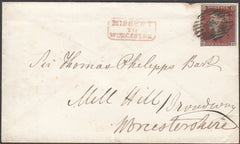 MISSENT
TO
WORCESTER
Sir Thomas Philipps Bart
Mill Hill / Broadway
Worcestershire